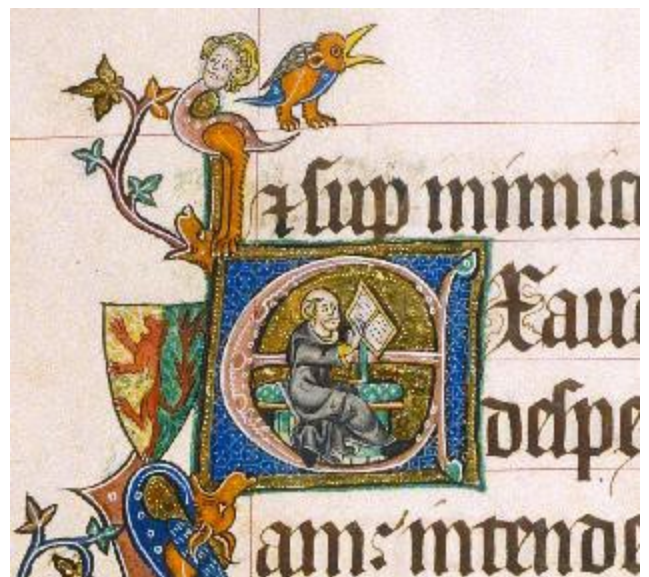 ⁊ ſup inimico
Exau
deſpe
am: intende